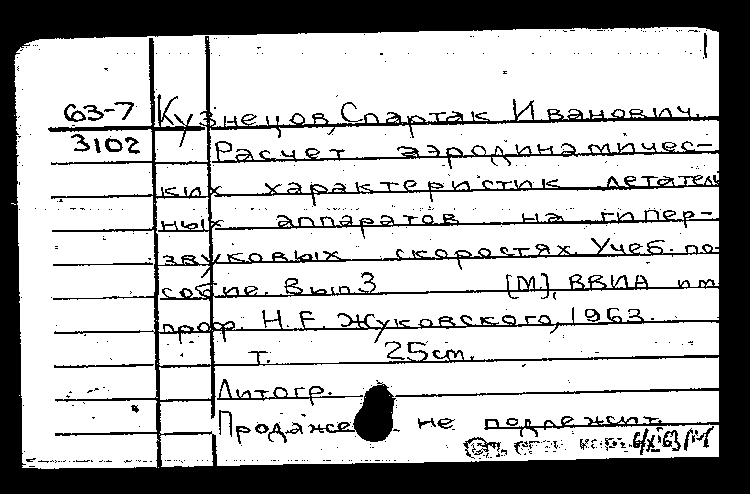 63-7 Кузнецов, Спартак Иванович.
3102 Расчет аэродинамичес-
ких характеристик летатель
ных аппаратов на гипер-
звуковых скоростях. Учеб. по-
собие. Вып 3 [М], ВВИА им
проф. Н. Е. Жуковского, 1963.
т. 25 см.
Литогр.
Продаже не подлежит.
6/XI 63